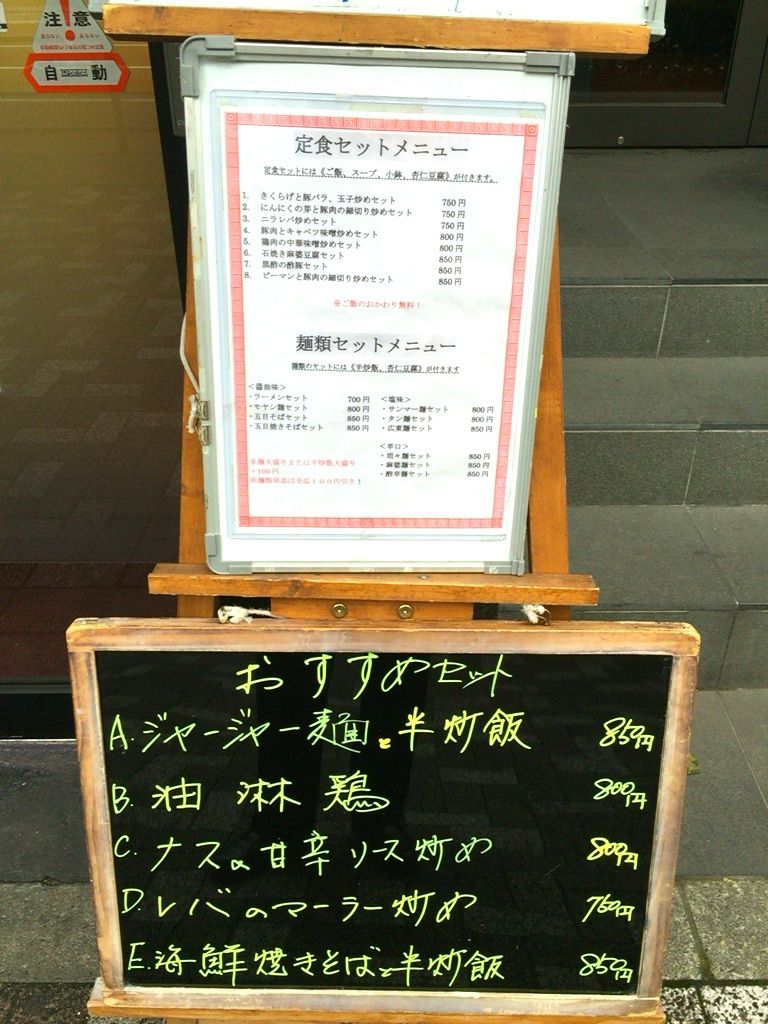 注意
自動
定食セットメニュー
定食セットには《ご飯、スープ、小鉢、杏仁豆腐》が付きます。
1. きくらげと豚バラ、玉子炒めセット 750円
2. にんにくの芽と豚肉の細切り炒めセット 750円
3. ニラレバ炒めセット 750円
4. 豚肉とキャベツ味噌炒めセット 800円
5. 鶏肉の中華味噌炒めセット 800円
6. 石焼き麻婆豆腐セット 850円
7. 黒酢の酢豚セット 850円
8. ピーマンと豚肉の細切り炒めセット 850円
※ご飯のおかわり無料！
麺類セットメニュー
麺類のセットには《半炒飯、杏仁豆腐》が付きます
＜醤油味＞
・ラーメンセット 700円
・モヤシ麺セット 800円
・五目そばセット 850円
・五目焼きそばセット 850円
＜塩味＞
・サンマー麺セット 800円
・タン麺セット 800円
・広東麺セット 850円
＜辛口＞
・坦々麺セット 850円
・麻婆麺セット 850円
・酢辛麺セット 850円
※麺大盛りまたは半炒飯大盛り
＋100円
※麺類単品は全品１００円引き！
おすすめセット
A.ジャージャー麺と半炒飯 850円
B.油淋鶏 800円
C.ナスの甘辛ソース炒め 800円
D.レバのマーラー炒め 750円
E.海鮮焼きそばと半炒飯 850円